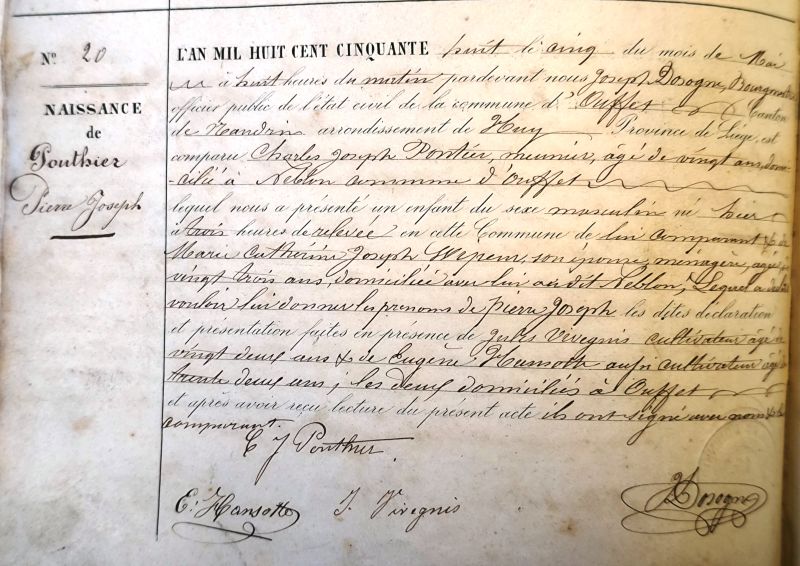 N° 20
NAISSANCE
de
Ponthier
Pierre Joseph
L'AN MIL HUIT CENT CINQUANTE huit le cinq du mois de Mai
à huit heures du matin pardevant nous Joseph Dosogne, Bourgmestre
officier public de l'état civil de la commune d' Ouffet Canton
de Nandrin arrondissement de Huy Province de Liége, est
comparu Charles Joseph Pontier, meunier, âgé de vingt ans, domi-
cilié à Neblon commune d'Ouffet
lequel nous a présenté un enfant du sexe masculin né hier
à trois heures de relevée en cette Commune de lui comparant & de
Marie Catherine Joseph son épouse, ménagère, agée de
vingt trois ans, domiciliée avec lui au dit Neblon, Lequel a déclaré
vouloir lui donner les prénoms de Pierre Joseph les dites déclaration
et présentation faites en présence de Jules Vivegnis cultivateur âgé de
vingt deux ans & de Eugène Hansotte aussi cultivateur âgé de
trente deux ans; les deux domiciliés à Ouffet
et après avoir reçu lecture du présent acte ils ont signé avec nous & le
comparant.
C J Ponthier
E: Hansotte J. Vivegnis Dosogne